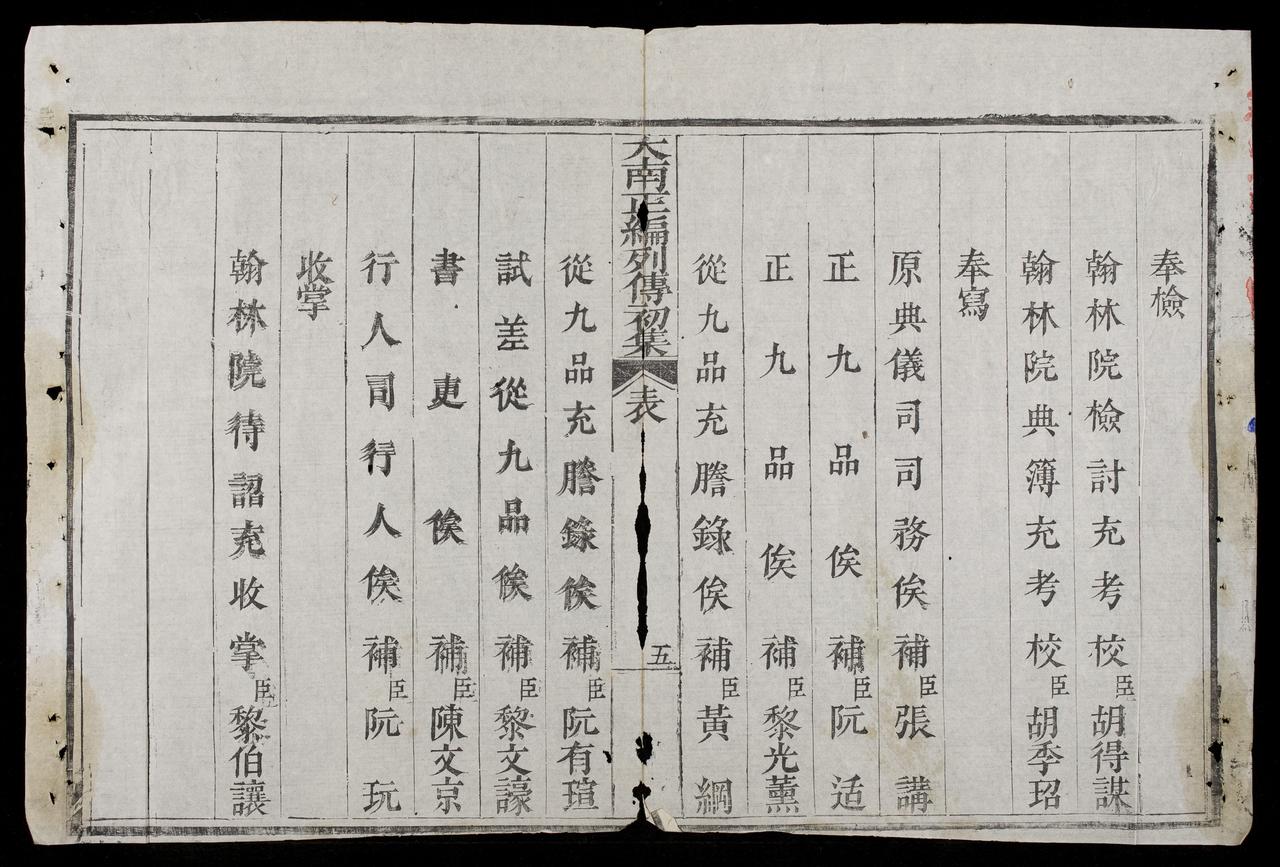 奉檢
翰林院檢討充考校臣胡得謀
翰林院典簿充考校臣胡季玿
奉寫
原典儀司司務俟補臣張講
正九品俟補臣阮适
正九品俟補臣黎光薰
從九品充謄錄俟補臣黃綱
大南正編列傳初集
表
五
從九品充謄錄俟補臣阮有瑄
試差從九品俟補臣黎文譹
書吏俟補臣陳文京
行人司行人俟補臣阮玩
收掌
翰林院待詔充收掌臣黎伯讓